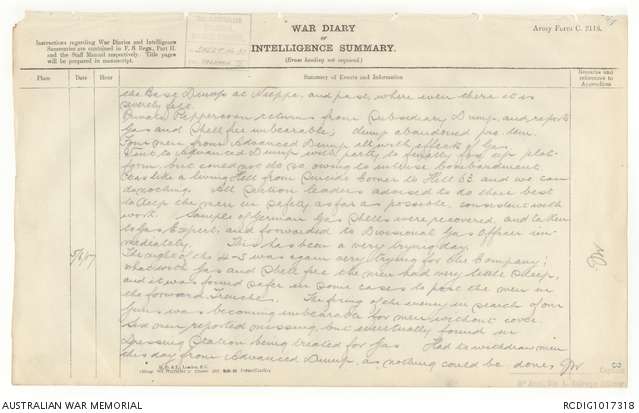 WAR DIARY
or
INTELLIGENCE SUMMARY.
(Erase heading not required)
Army Form C. 2118.
Instructions regarding War Diaries and Intelligence
Summaries are contained in F. S. Regs., Part II.
and the Staff Manual respectively. Title pages
will be prepared in manuscript.
Place Date Hour Summary of Events and Information Remarks and references to Appendices
the Base Dump at Nieppe, and past, where even there it is
severely felt.
Private returns from Subsidiary Dump, and reports
Gas and Shell fire unbearable; dump abandoned pro tem.
Four men from Advanced Dump ill with effects of Gas.
Went to Advanced Dump with party to finally fix up plat-
form but could not do so owing to intense bombardment
It was like a living Hell from Suicide Corner to Hill 63 and we can
do nothing. All Section leaders advised to do their best
to keep the men in safety as far as possible, consistent with
work. Sample of German Gas Shells were recovered, and taken
to Gas Expert, and forwarded to Divisional Gas Officer im-
mediately. This has been a very trying day.
5/6/17 The night of the 4-5 was again very trying for the Company;
what with Gas and Shell fire the men had very little sleep,
and it was found safer in some cases to put the men in
the forward Trenches. The firing of the enemy in search of our
guns was becoming unbearable for men without cover.
Six men reported missing, but eventually found in
Dressing Station being treated for Gas. Had to withdraw men
this day from Advanced Dump, as nothing could be done.
AUSTRALIAN WAR MEMORIAL
RCDIG1017318